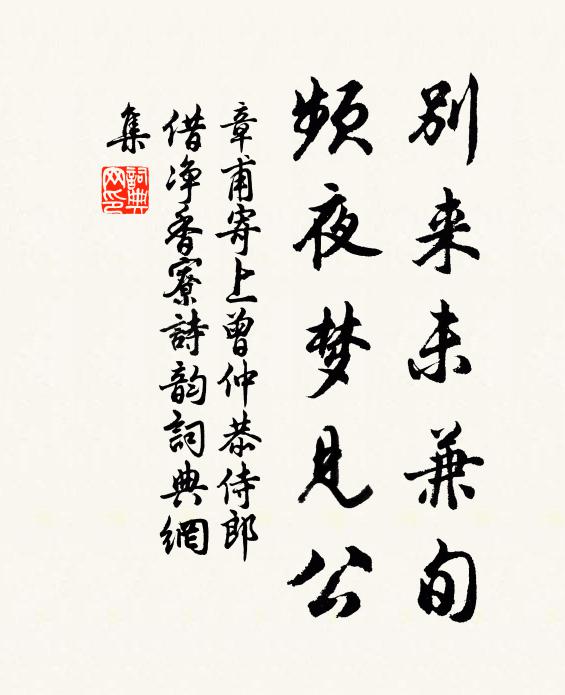 别来未兼旬
频夜梦见公
章甫寄上曾仲恭侍郎
借净香寮詩韵詞典網
集
詞典
网印